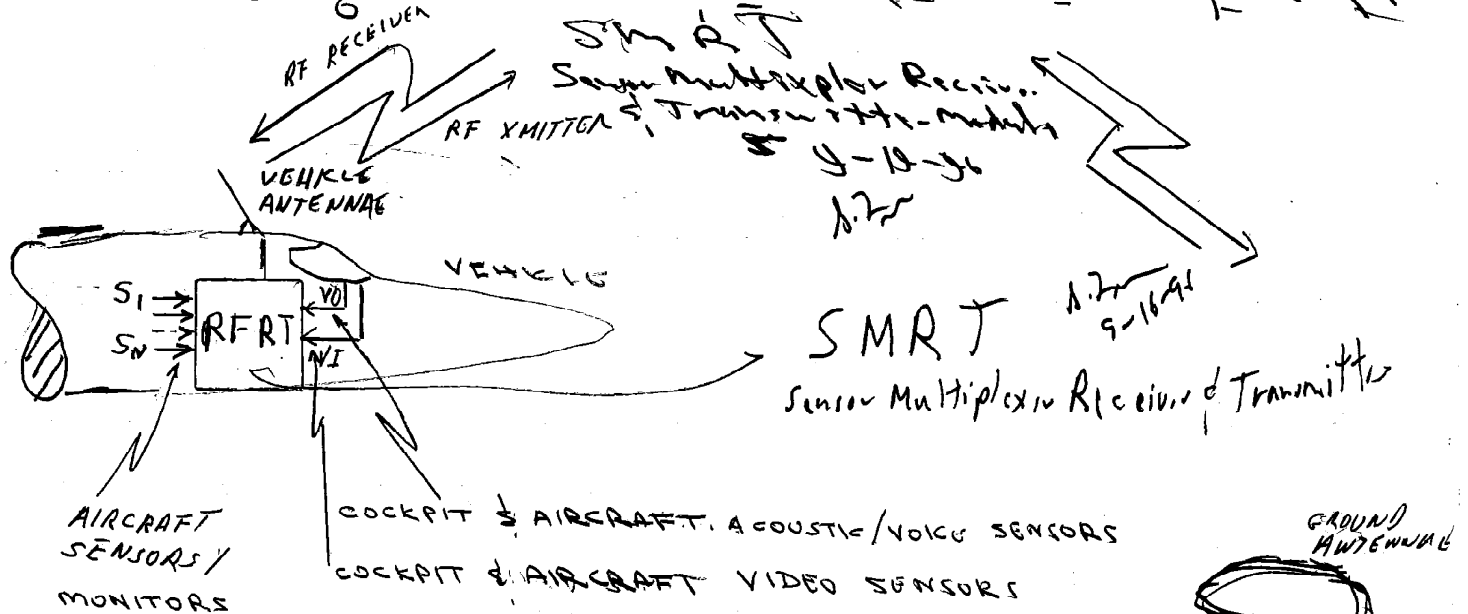 RF RECEIVER
SMRT
Sensor Multiplexor Receiver
& Transmitter-
RF XMITTER
VEHICLE
ANTENNAE
VEHICLE
S1
SN
RFRT
VO
VI
SMRT
9-16-96
Sensor Multiplexer Receiver & Transmitter
AIRCRAFT
SENSORS/
MONITORS
COCKPIT & AIRCRAFT ACOUSTIC/VOICE SENSORS
COCKPIT & AIRCRAFT VIDEO SENSORS
GROUND
ANTENNAE